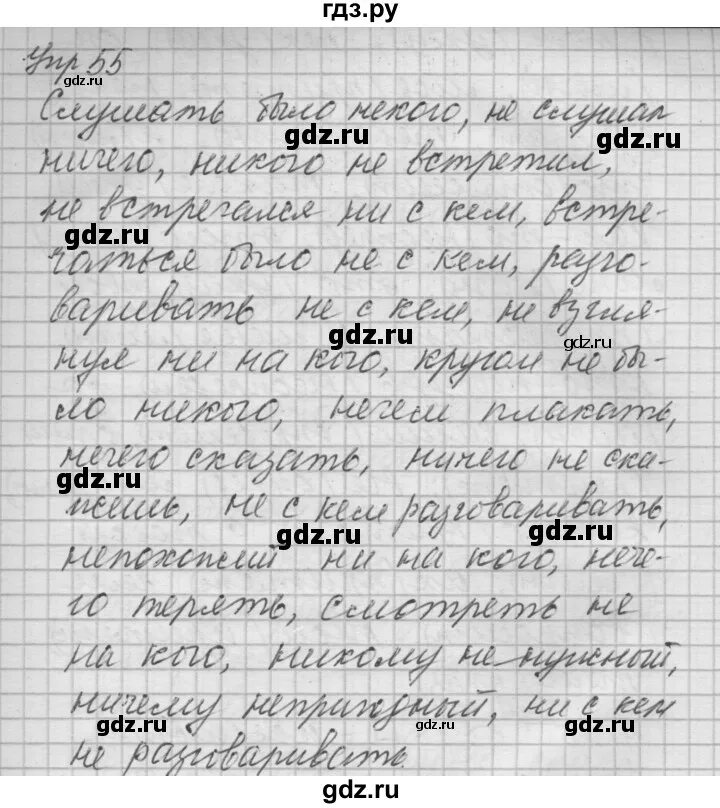 гдз.ру
Упр 55
gdz.ru
Слушать было некого, не слушал
gdz.ru gdz.ru
ничего, никого не встретил,
не встречался ни с кем, встре-
gdz.ru
чаться было не с кем, разго-
варивать не с кем, не взгля-
gdz.ru gdz.ru
нул ни на кого, кругом не бы-
ло никого, нечем плакать,
нечего сказать, ничего не ска-
gdz.ru gdz.ru
жешь, не с кем разговаривать,
gdz.ru gdz.ru
непохожий ни на кого, нече-
го терять, смотреть не
на кого, никому не нужный,
ничему непригодный, ни с кем
gdz.ru gdz.ru gdz.ru
не разговаривать
gdz.ru